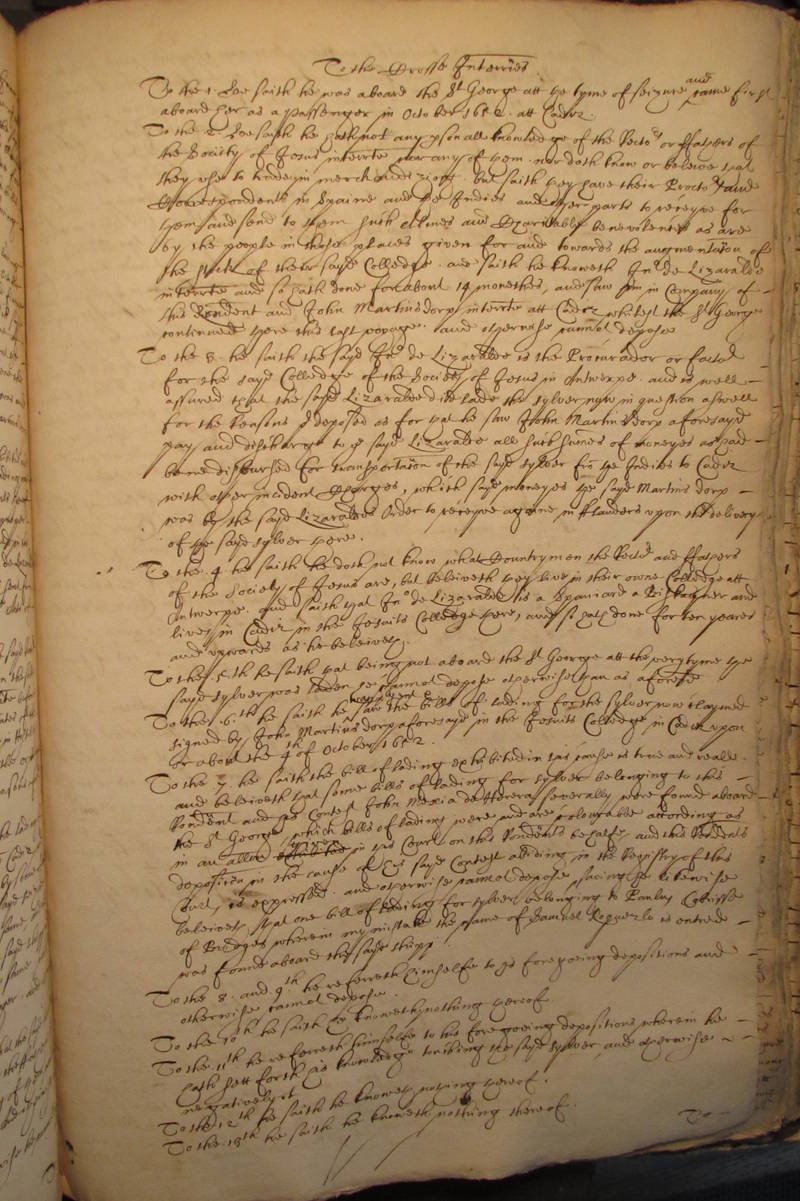 To the Crosse Interries
To the 1. hee saith he was aboard the St George att the tyme of seizure and came first
aboard her as a passenger in October 1652. att Cadiz.
To the 2. hee saith he hath not any psonall knowledge of the Rector or ffathers of
the Society of Jesus interrte nor any of them. nor doth know or beleeve that
they use to trade in merchandizing. but saith they have their Proctors and
Correspondents in Spaine and the Indies and other parts to receyve for
them and send to them such Almes and Charitable benevolences as are
by the people in those places given for and towards the augmentation of
the stock of their sayd Colledge. and saith he knoweth Jno de Lizaralde
interrte and so hath done for about 14 monethes, and saw him in Company of
this Rendent and John Martins dorp interrte att Cadiz whilest the St George
continued there this last voyage. and otherwise cannot depose
To the 3. he saith the sayd Jno de Lizaralde is the Procurador or factor
for the sayd Colledge of the Society of Jesus in Antwerpe. and is well
assured that the sayd Lizaralde did lade the sylver now in question aswell
for the reasons predeposed as for that he saw John Martins dorp aforesayd
pay and discharge to the sayd Lizaralde all such summes of moneyes as had
beene disbursed for transportation of the sayd sylver from the Indies to Cadiz
with other incident Charges, which sayd moneyes the sayd Martins dorp
was by the sayd Lizaraldes order to receyve againe in fflanders upon the delivery
of the sayd sylver there.
To the 4. he saith he doth not know what Countrymen the Rector and ffathers
of the Society of Jesus are, but beleiveth they live in their owne Colledge att
Antwerpe. And saith that Jno de Lizaralde is a Spaniard a Biskayner and
lives in Cadiz in the Jesuits Colledge there, and so hath done for ten yeares
and upwards as he beleives.
To the 5th he saith that being not aboard the St George att the very tyme the
sayd sylver was laden he cannot depose otherwise than as aforesd
To the 6th he saith he saw the bills of lading for the sylver now claymed
signed by John Martins dorp aforesayd in the Jesuits Colledge in Cadiz upon
or about the 4th of October 1652.
To the 7. he saith the bill of lading exhibited in this cause is true and reall.
and beleiveth that some bills of lading for sylver belonging to this
Rendent and his Contest John Mexia de Herera severally were found aboard
the St George which bills of lading were and are colourable according as
in an allon in this Court on this Rendents behalfe and this Rendents
deposition in the cause of his sayd Contest abiding in the Registry of this
Court, is expressed. and otherwise cannot depose, saving he likewise
beleives that one bill of lading for sylver belonging to Paulus
of Bridges wherein by mistake the name of Samuel is entred
was found aboard the sayd shipp.
To the 8. and 9th he referreth himselfe to his foregoeing depositions and
otherwise cannot depose.
To the 10th he saith he knoweth nothing thereof.
To the 11th he referreth himselfe to his foregoeing depositions wherein he
hath sett forth his knowledge touching the sayd sylver, and otherwise
negatively
To the 12th he saith he knoweth nothing thereof.
To the 13th he saith he knoweth nothing thereof.
To